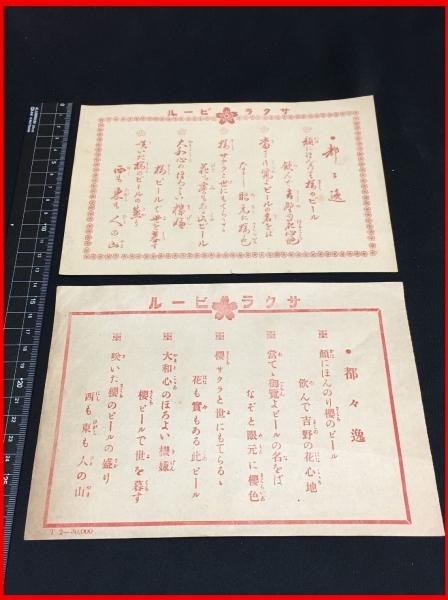 ルービ ラクサ
都々逸
顔にほんのり櫻のビール
飲んで吉野の花心地
當てゝ御覽よビールの名をば
なぞと眼元に櫻色
櫻サクラと世にもてらるゝ
花も實もある此ビール
大和心のほろよい機嫌
櫻ビールで世を暮す
咲いた櫻のビールの盛り
西も東も人の山
ルービ ラクサ
都々逸
※
顔にほんのり櫻のビール
飲んで吉野の花心地
※
當てゝ御覽よビールの名をば
なぞと眼元に櫻色
※
櫻サクラと世にもてらるゝ
花も實もある此ビール
※
大和心のほろよい機嫌
櫻ビールで世を暮す
※
咲いた櫻のビールの盛り
西も東も人の山
T. 2—30,000